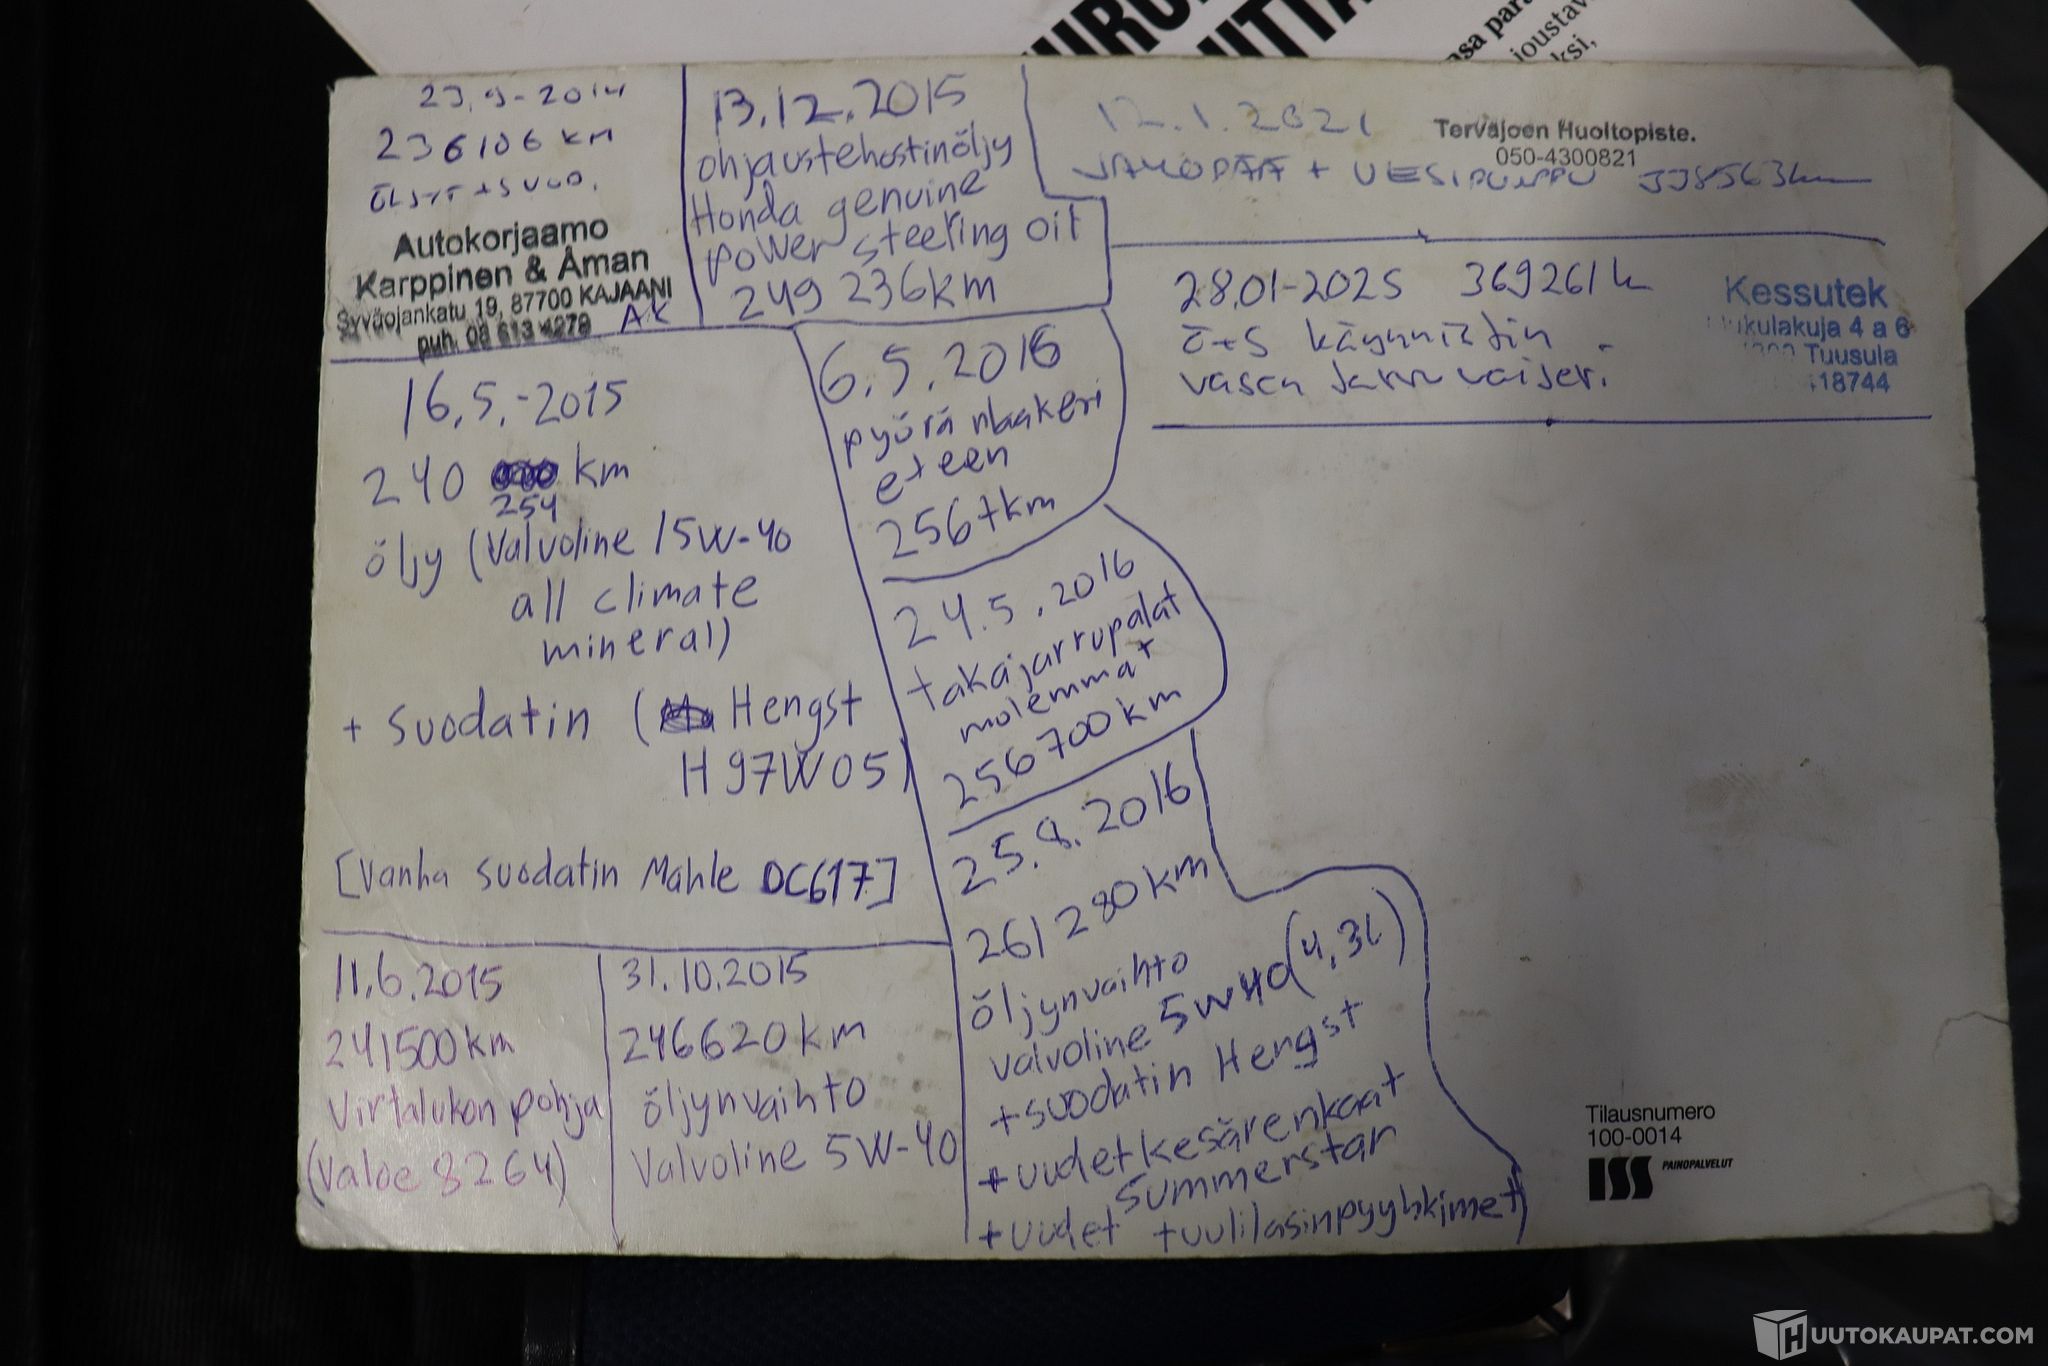 joustav
23.9-2014
236106 KM
Autokorjaamo
Karppinen & Åman
Syväojankatu 19, 87700 KAJAANI
puh. 08 613 4279
AK
13.12.2015
ohjaustehostinöljy
Honda genuine
power steering oil
249 236km
12.1.2021
Tervajoen Huoltopiste.
050-4300821
JAKOPÄÄ + VESIPUMPPU 338563km
28.01-2025 369261k
ö+S käynnistin
vasen
Kessutek
4 a 6
Tuusula
18744
16.5.-2015
240 km
254
öljy (Valvoline 15W-40
all climate
mineral)
+ suodatin ( Hengst
H97W05)
[Vanha suodatin Mahle OC617]
6.5.2016
pyöränlaakeri
eteen
2567km
24.5.2016
takajarrupalat
molemmat
256700km
25.8.2016
261280km
öljynvaihto
valvoline 5W40 (4,3l)
+suodatin Hengst
+uudet kesärenkaat
summerstar
+uudet tuulilasinpyyhkimet
11.6.2015
241500km
Virtalukon pohja
(Valoe 8264)
31.10.2015
246620km
öljynvaihto
Valvoline 5W-40
Tilausnumero
100-0014
ISS PAINOPALVELUT
HUUTOKAUPAT.COM